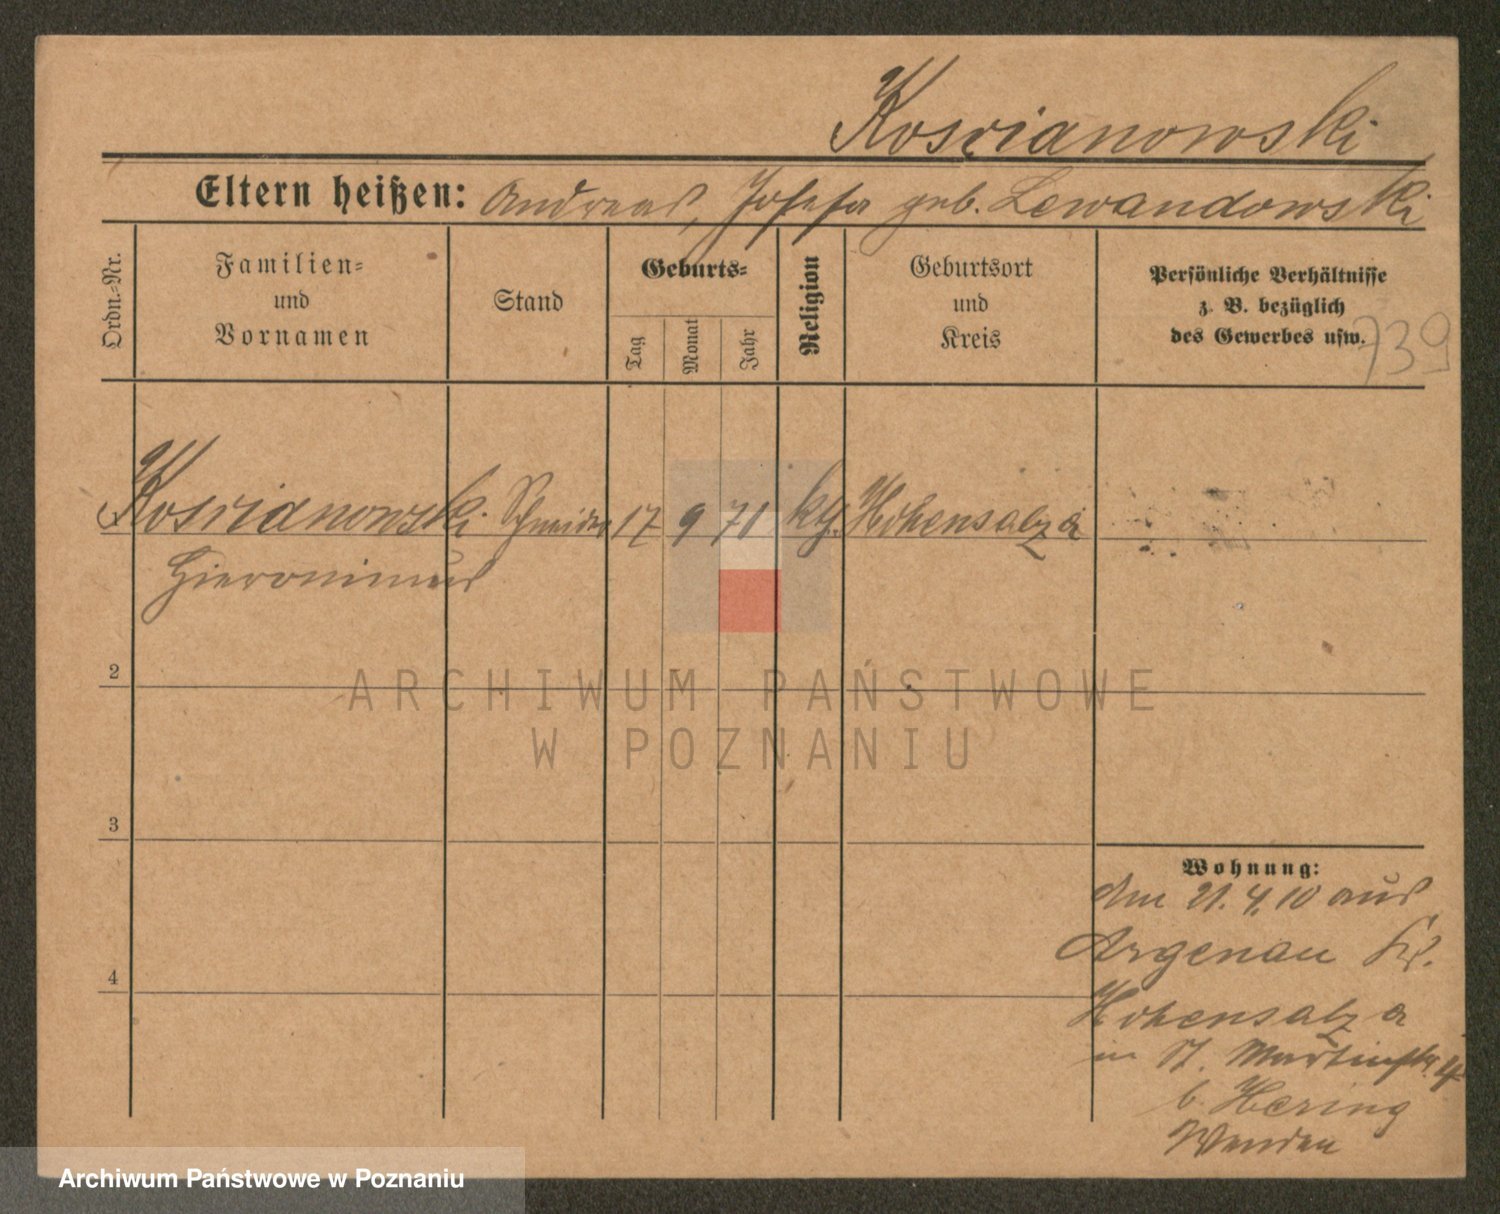 Kosvianowski
Eltern heißen: Andreas, Josefa geb. Lewandowski
Ordn.=Nr.
Familien=
und
Vornamen
Stand
Geburts=
Tag
Monat
Jahr
Religion
Geburtsort
und
Kreis
Persönliche Verhältnisse
z. B. bezüglich
des Gewerbes usw.
739
Kosvianowski Schneider 17 9 71 kth. Hohensalza
Hieronimus
2
3
4
ARCHIWUM PAŃSTWOWE
W POZNANIU
Wohnung:
am 21.4.10 aus
Argenau Kr.
Hohensalza
in St. Martinstr. 4
b. Hering
Archiwum Państwowe w Poznaniu